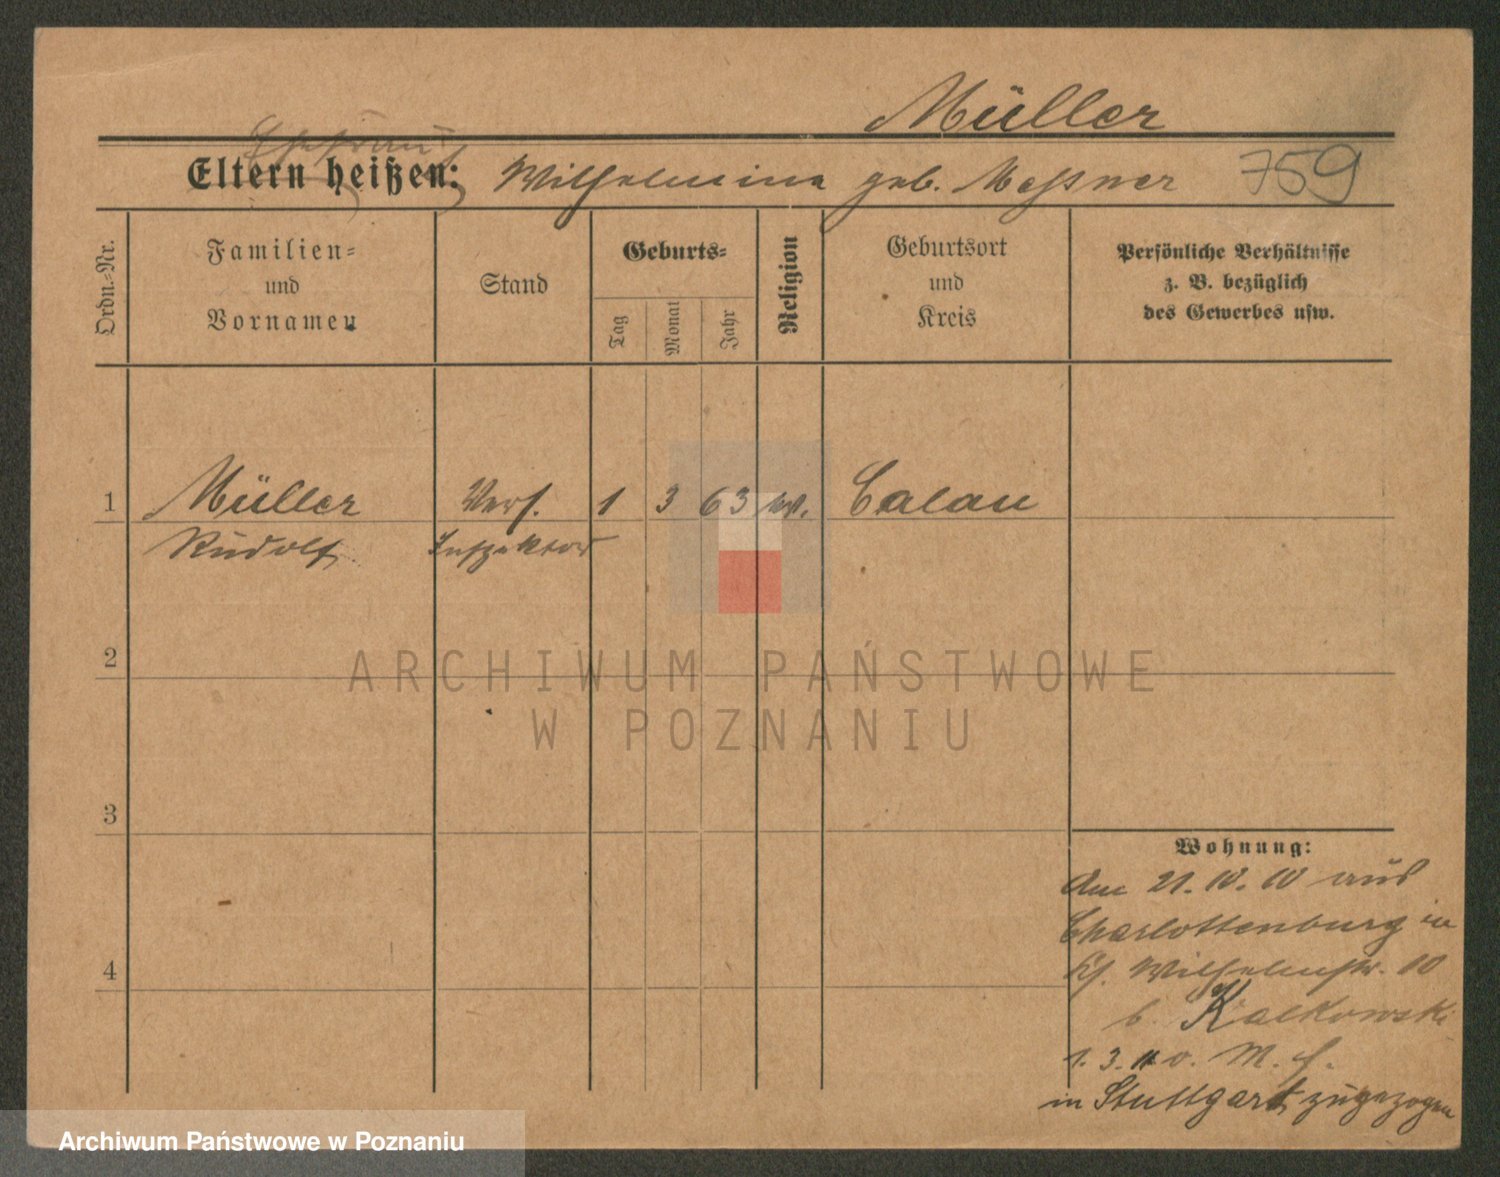 Müller
Ehefrau
Eltern heißen: Wilhelmina geb. Meßner 759
Ordn.=Nr.
Familien=
und
Vornamen
Stand
Geburts=
Tag
Monat
Jahr
Religion
Geburtsort
und
Kreis
Persönliche Verhältnisse
z. B. bezüglich
des Gewerbes usw.
1 Müller Vers. 1 3 63 ev. Calau
Rudolf Inspektor
2
3
4
Wohnung:
Am 21. 10. 10 aus
Charlottenburg in
Wilhelmstr. 10
b. Kalkowski
1. 3. 11 v. M. f.
in Stuttgart zugezogen
ARCHIWUM PAŃSTWOWE
W POZNANIU
Archiwum Państwowe w Poznaniu